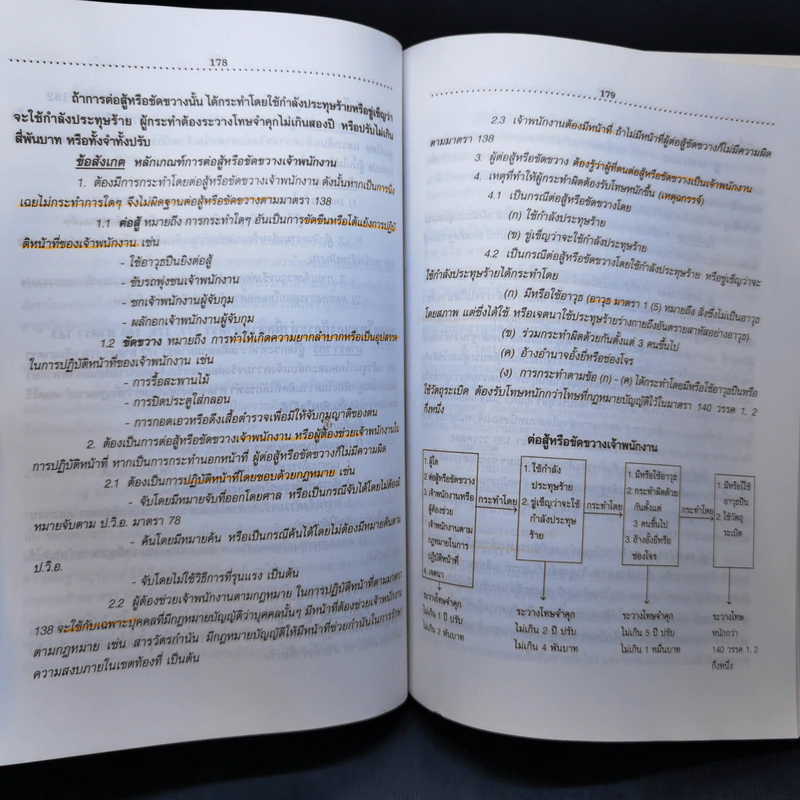 178
ถ้าการต่อสู้หรือขัดขวางนั้น ได้กระทำโดยใช้กำลังประทุษร้ายหรือขู่เข็ญว่า
จะใช้กำลังประทุษร้าย ผู้กระทำต้องระวางโทษจำคุกไม่เกินสองปี หรือปรับไม่เกิน
สี่พันบาท หรือทั้งจำทั้งปรับ
ข้อสังเกต หลักเกณฑ์การต่อสู้หรือขัดขวางเจ้าพนักงาน
1. ต้องมีการกระทำโดยต่อสู้หรือขัดขวางเจ้าพนักงาน ดังนั้นหากเป็นการนิ่ง
เฉยไม่กระทำการใดๆ จึงไม่ผิดฐานต่อสู้หรือขัดขวางตามมาตรา 138
1.1 ต่อสู้ หมายถึง การกระทำใดๆ อันเป็นการขัดขืนหรือโต้แย้งการปฏิบั
ติหน้าที่ของเจ้าพนักงาน เช่น
- ใช้อาวุธปืนยิงต่อสู้
- ขับรถพุ่งชนเจ้าพนักงาน
- ชกเจ้าพนักงานผู้จับกุม
- ผลักอกเจ้าพนักงานผู้จับกุม
1.2 ขัดขวาง หมายถึง การทำให้เกิดความยากลำบากหรือเป็นอุปสรรค
ในการปฏิบัติหน้าที่ของเจ้าพนักงาน เช่น
- การรื้อสะพานไม้
- การปิดประตูใส่กลอน
- การกอดเอวหรือดึงเสื้อตำรวจเพื่อมิให้จับกุมญาติของตน
2. ต้องเป็นการต่อสู้หรือขัดขวางเจ้าพนักงาน หรือผู้ต้องช่วยเจ้าพนักงานใน
การปฏิบัติหน้าที่ หากเป็นการกระทำนอกหน้าที่ ผู้ต่อสู้หรือขัดขวางก็ไม่มีความผิด
2.1 ต้องเป็นการปฏิบัติหน้าที่โดยชอบด้วยกฎหมาย เช่น
- จับโดยมีหมายจับที่ออกโดยศาล หรือเป็นกรณีจับได้โดยไม่ต้องมี
หมายจับตาม ป.วิ.อ. มาตรา 78
- ค้นโดยมีหมายค้น หรือเป็นกรณีค้นได้โดยไม่ต้องมีหมายค้นตาม
ป.วิ.อ.
- จับโดยไม่ใช้วิธีการที่รุนแรง เป็นต้น
2.2 ผู้ต้องช่วยเจ้าพนักงานตามกฎหมาย ในการปฏิบัติหน้าที่ตามมาตรา
138 จะใช้กับเฉพาะบุคคลที่มีกฎหมายบัญญัติว่าบุคคลนั้นๆ มีหน้าที่ต้องช่วยเจ้าพนักงาน
ตามกฎหมาย เช่น สารวัตรกำนัน มีกฎหมายบัญญัติให้มีหน้าที่ช่วยกำนันในการรักษา
ความสงบภายในเขตท้องที่ เป็นต้น
179
2.3 เจ้าพนักงานต้องมีหน้าที่ ถ้าไม่มีหน้าที่ผู้ต่อสู้ขัดขวางก็ไม่มีความผิด
ตามมาตรา 138
3. ผู้ต่อสู้หรือขัดขวาง ต้องรู้ว่าผู้ที่ตนต่อสู้หรือขัดขวางเป็นเจ้าพนักงาน
4. เหตุที่ทำให้ผู้กระทำผิดต้องรับโทษหนักขึ้น (เหตุฉกรรจ์)
4.1 เป็นกรณีต่อสู้หรือขัดขวางโดย
(ก) ใช้กำลังประทุษร้าย
(ข) ขู่เข็ญว่าจะใช้กำลังประทุษร้าย
4.2 เป็นกรณีต่อสู้หรือขัดขวางโดยใช้กำลังประทุษร้าย หรือขู่เข็ญว่าจะ
ใช้กำลังประทุษร้ายได้กระทำโดย
(ก) มีหรือใช้อาวุธ (อาวุธ มาตรา 1 (5) หมายถึง สิ่งซึ่งไม่เป็นอาวุธ
โดยสภาพ แต่ซึ่งได้ใช้ หรือเจตนาใช้ประทุษร้ายร่างกายถึงอันตรายสาหัสอย่างอาวุธ)
(ข) ร่วมกระทำผิดด้วยกันตั้งแต่ 3 คนขึ้นไป
(ค) อ้างอำนาจอั้งยี่หรือซ่องโจร
(ง) การกระทำตามข้อ (ก) - (ค) ได้กระทำโดยมีหรือใช้อาวุธปืนหรือ
ใช้วัตถุระเบิด ต้องรับโทษหนักกว่าโทษที่กฎหมายบัญญัติไว้ในมาตรา 140 วรรค 1, 2
กึ่งหนึ่ง
ต่อสู้หรือขัดขวางเจ้าพนักงาน
1. ผู้ใด
2. ต่อสู้หรือขัดขวาง
3. เจ้าพนักงานหรือ
ผู้ต้องช่วย
เจ้าพนักงานตาม
กฎหมายในการ
ปฏิบัติหน้าที่
4. เจตนา
กระทำโดย
1. ใช้กำลัง
ประทุษร้าย
2. ขู่เข็ญว่าจะใช้
กำลังประทุษ
ร้าย
กระทำโดย
1. มีหรือใช้อาวุธ
2. กระทำผิดด้วย
กันตั้งแต่
3 คนขึ้นไป
3. อ้างอั้งยี่หรือ
ซ่องโจร
กระทำโดย
1. มีหรือใช้
อาวุธปืน
2. ใช้วัตถุ
ระเบิด
ระวางโทษจำคุก
ไม่เกิน 1 ปี ปรับ
ไม่เกิน 2 พันบาท
ระวางโทษจำคุก
ไม่เกิน 2 ปี ปรับ
ไม่เกิน 4 พันบาท
ระวางโทษจำคุก
ไม่เกิน 5 ปี ปรับ
ไม่เกิน 1 หมื่นบาท
ระวางโทษ
หนักกว่า
140 วรรค 1, 2
กึ่งหนึ่ง